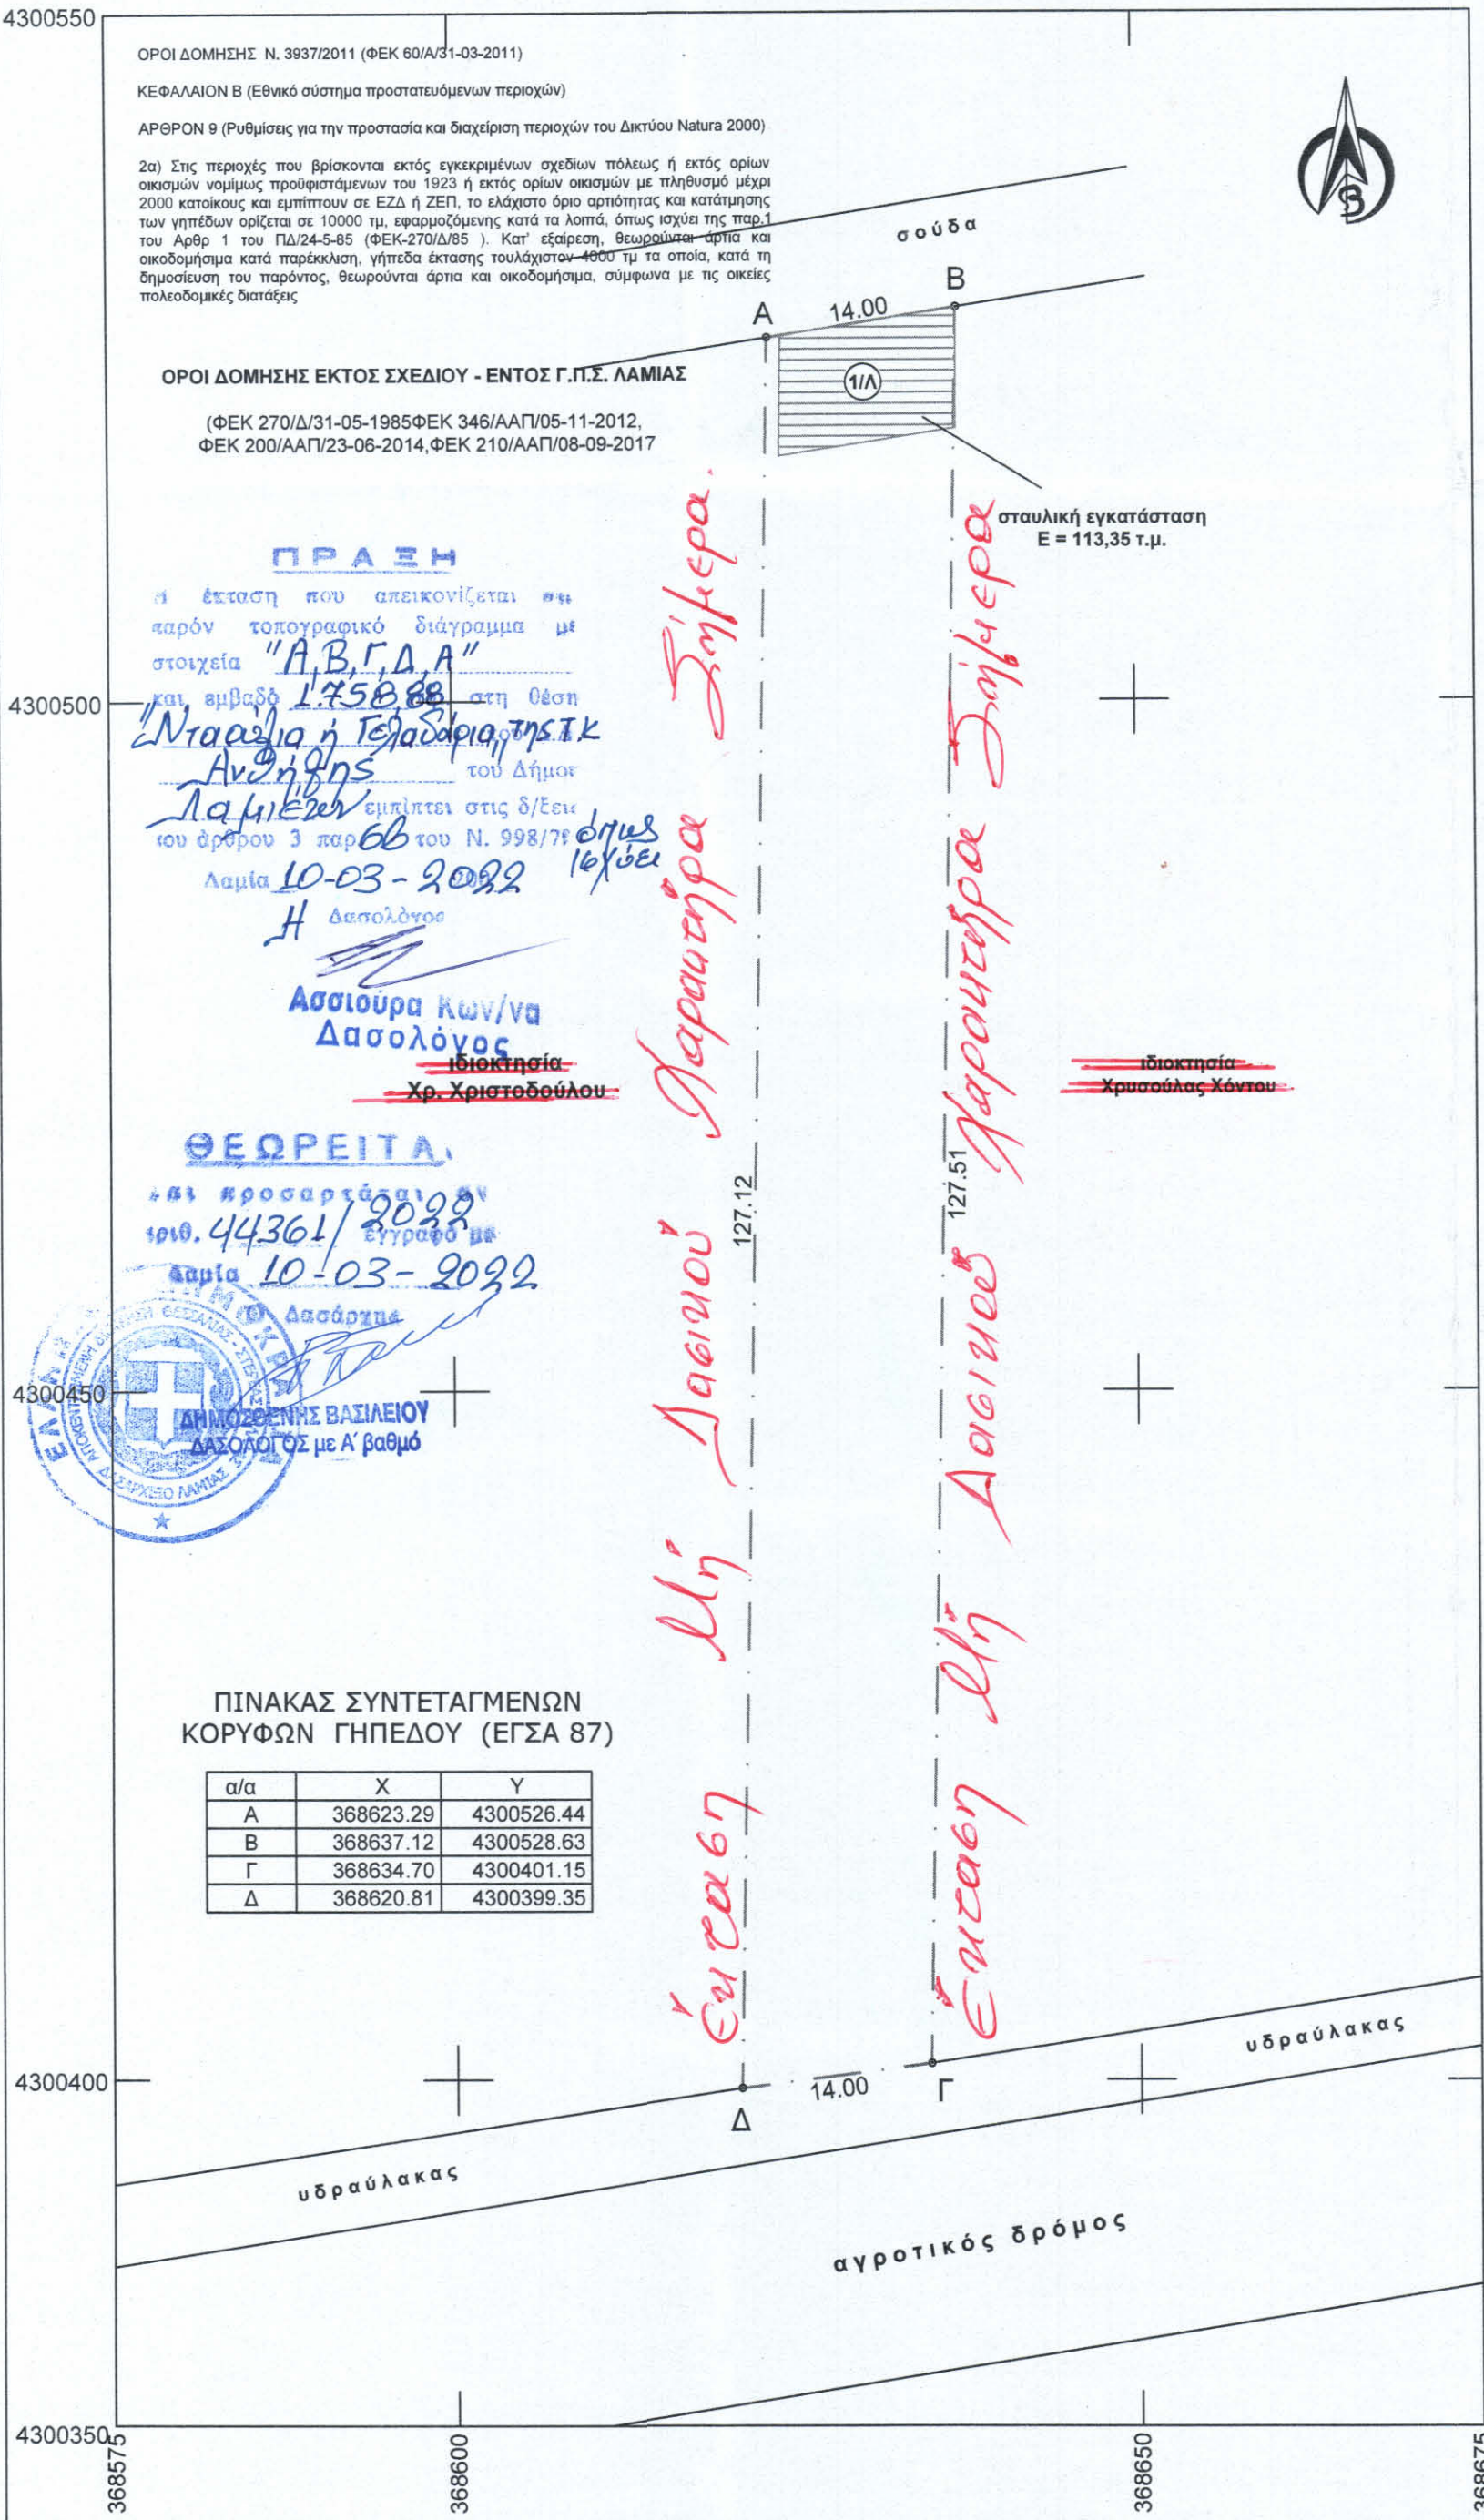 4300550
ΟΡΟΙ ΔΟΜΗΣΗΣ Ν. 3937/2011 (ΦΕΚ 60/Α/31-03-2011)
ΚΕΦΑΛΑΙΟΝ Β (Εθνικό σύστημα προστατευόμενων περιοχών)
ΑΡΘΡΟΝ 9 (Ρυθμίσεις για την προστασία και διαχείριση περιοχών του Δικτύου Natura 2000)
2α) Στις περιοχές που βρίσκονται εκτός εγκεκριμένων σχεδίων πόλεως ή εκτός ορίων
οικισμών νομίμως προϋφιστάμενων του 1923 ή εκτός ορίων οικισμών με πληθυσμό μέχρι
2000 κατοίκους και εμπίπτουν σε ΕΖΔ ή ΖΕΠ, το ελάχιστο όριο αρτιότητας και κατάτμησης
των γηπέδων ορίζεται σε 10000 τμ, εφαρμοζόμενης κατά τα λοιπά, όπως ισχύει της παρ.1
του Αρθρ 1 του ΠΔ/24-5-85 (ΦΕΚ-270/Δ/85 ). Κατ' εξαίρεση, θεωρούνται άρτια και
οικοδομήσιμα κατά παρέκκλιση, γήπεδα έκτασης τουλάχιστον 4000 τμ τα οποία, κατά τη
δημοσίευση του παρόντος, θεωρούνται άρτια και οικοδομήσιμα, σύμφωνα με τις οικείες
πολεοδομικές διατάξεις
Β
σούδα
Α
14.00
Β
1/Λ
ΟΡΟΙ ΔΟΜΗΣΗΣ ΕΚΤΟΣ ΣΧΕΔΙΟΥ - ΕΝΤΟΣ Γ.Π.Σ. ΛΑΜΙΑΣ
(ΦΕΚ 270/Δ/31-05-1985ΦΕΚ 346/ΑΑΠ/05-11-2012,
ΦΕΚ 200/ΑΑΠ/23-06-2014,ΦΕΚ 210/ΑΑΠ/08-09-2017
σταυλική εγκατάσταση
Ε = 113,35 τ.μ.
ΠΡΑΞΗ
έκταση που απεικονίζεται
παρόν τοπογραφικό διάγραμμα με
στοιχεία "Α,Β,Γ,Δ,Α"
4300500
και εμβαδό 1.758,88 στη θέση
της Τ.Κ
Ανθήλης του Δήμου
Λαμιέων εμπίπτει στις δ/ξεις
του άρθρου 3 παρ 6β του Ν. 998/79 όπως
ισχύει
Λαμία 10-03-2022
Η Δασολόγος
Ασσιούρα Κων/να
Δασολόγος
ιδιοκτησία
Χρ. Χριστοδούλου
ιδιοκτησία
Χρυσούλας Χόντου
ΘΕΩΡΕΙΤΑΙ
και προσαρτάται
αριθ. 44361/2022 έγγραφό μας
Λαμία 10-03-2022
Δασάρχης
4300450
ΔΗΜΟΣΘΕΝΗΣ ΒΑΣΙΛΕΙΟΥ
ΔΑΣΟΛΟΓΟΣ με Α΄ βαθμό
ΔΑΣΑΡΧΕΙΟ ΛΑΜΙΑΣ
127.12
127.51
Έκταση Μή Δασικού Χαρακτήρα Σήμερα.
Έκταση Μή Δασικού Χαρακτήρα Σήμερα
ΠΙΝΑΚΑΣ ΣΥΝΤΕΤΑΓΜΕΝΩΝ
ΚΟΡΥΦΩΝ ΓΗΠΕΔΟΥ (ΕΓΣΑ 87)
α/α Χ Υ
Α 368623.29 4300526.44
Β 368637.12 4300528.63
Γ 368634.70 4300401.15
Δ 368620.81 4300399.35
4300400
Δ
14.00
Γ
υδραύλακας
υδραύλακας
αγροτικός δρόμος
4300350
368575
368600
368650
368675